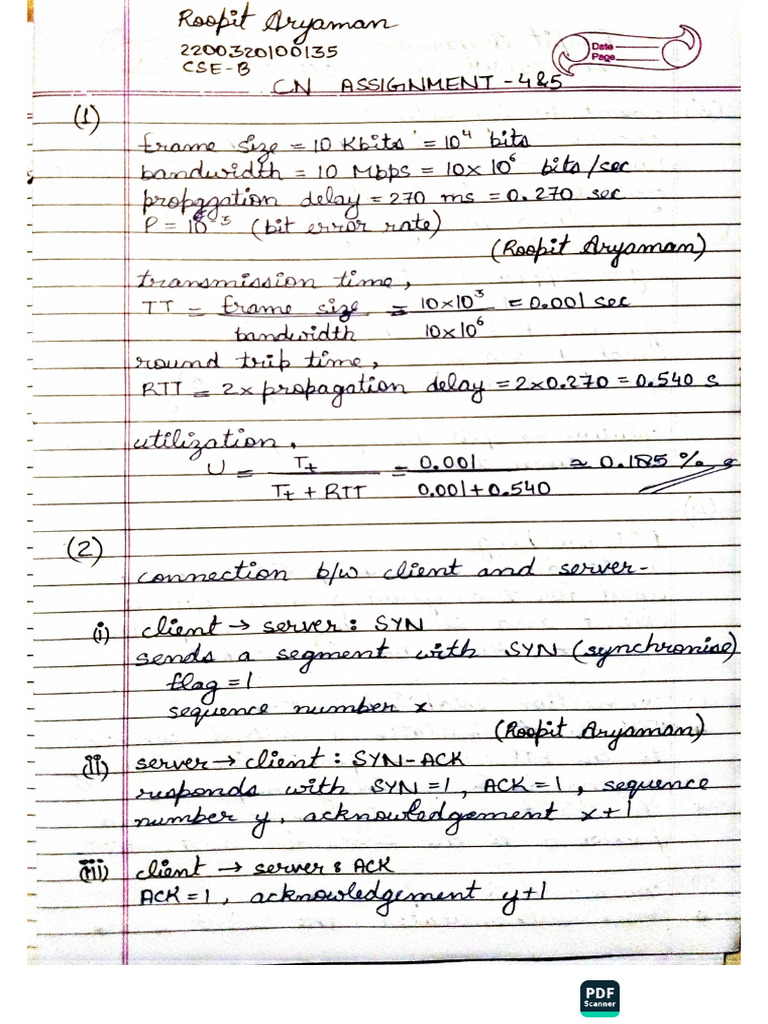 Roopit Aryaman
2200320100135
CSE-B
Date
Page
CN ASSIGNMENT - 4&5
(1)
frame size = 10 Kbits = 10⁴ bits
bandwidth = 10 Mbps = 10×10⁶ bits/sec
propagation delay = 270 ms = 0.270 sec
P = 10⁻³ (bit error rate)
(Roopit Aryaman)
transmission time,
TT = frame size / bandwidth = 10×10³ / 10×10⁶ = 0.001 sec
round trip time,
RTT = 2× propagation delay = 2×0.270 = 0.540 s
utilization,
U = Tt / Tt + RTT = 0.001 / 0.001+0.540 ≈ 0.185 %
(2)
connection b/w client and server-
(i) client → server : SYN
sends a segment with SYN (synchronise)
flag = 1
sequence number x
(Roopit Aryaman)
(ii) server → client : SYN-ACK
responds with SYN = 1, ACK = 1, sequence
number y, acknowledgement x+1
(iii) client → server : ACK
ACK = 1, acknowledgement y+1
PDF
Scanner